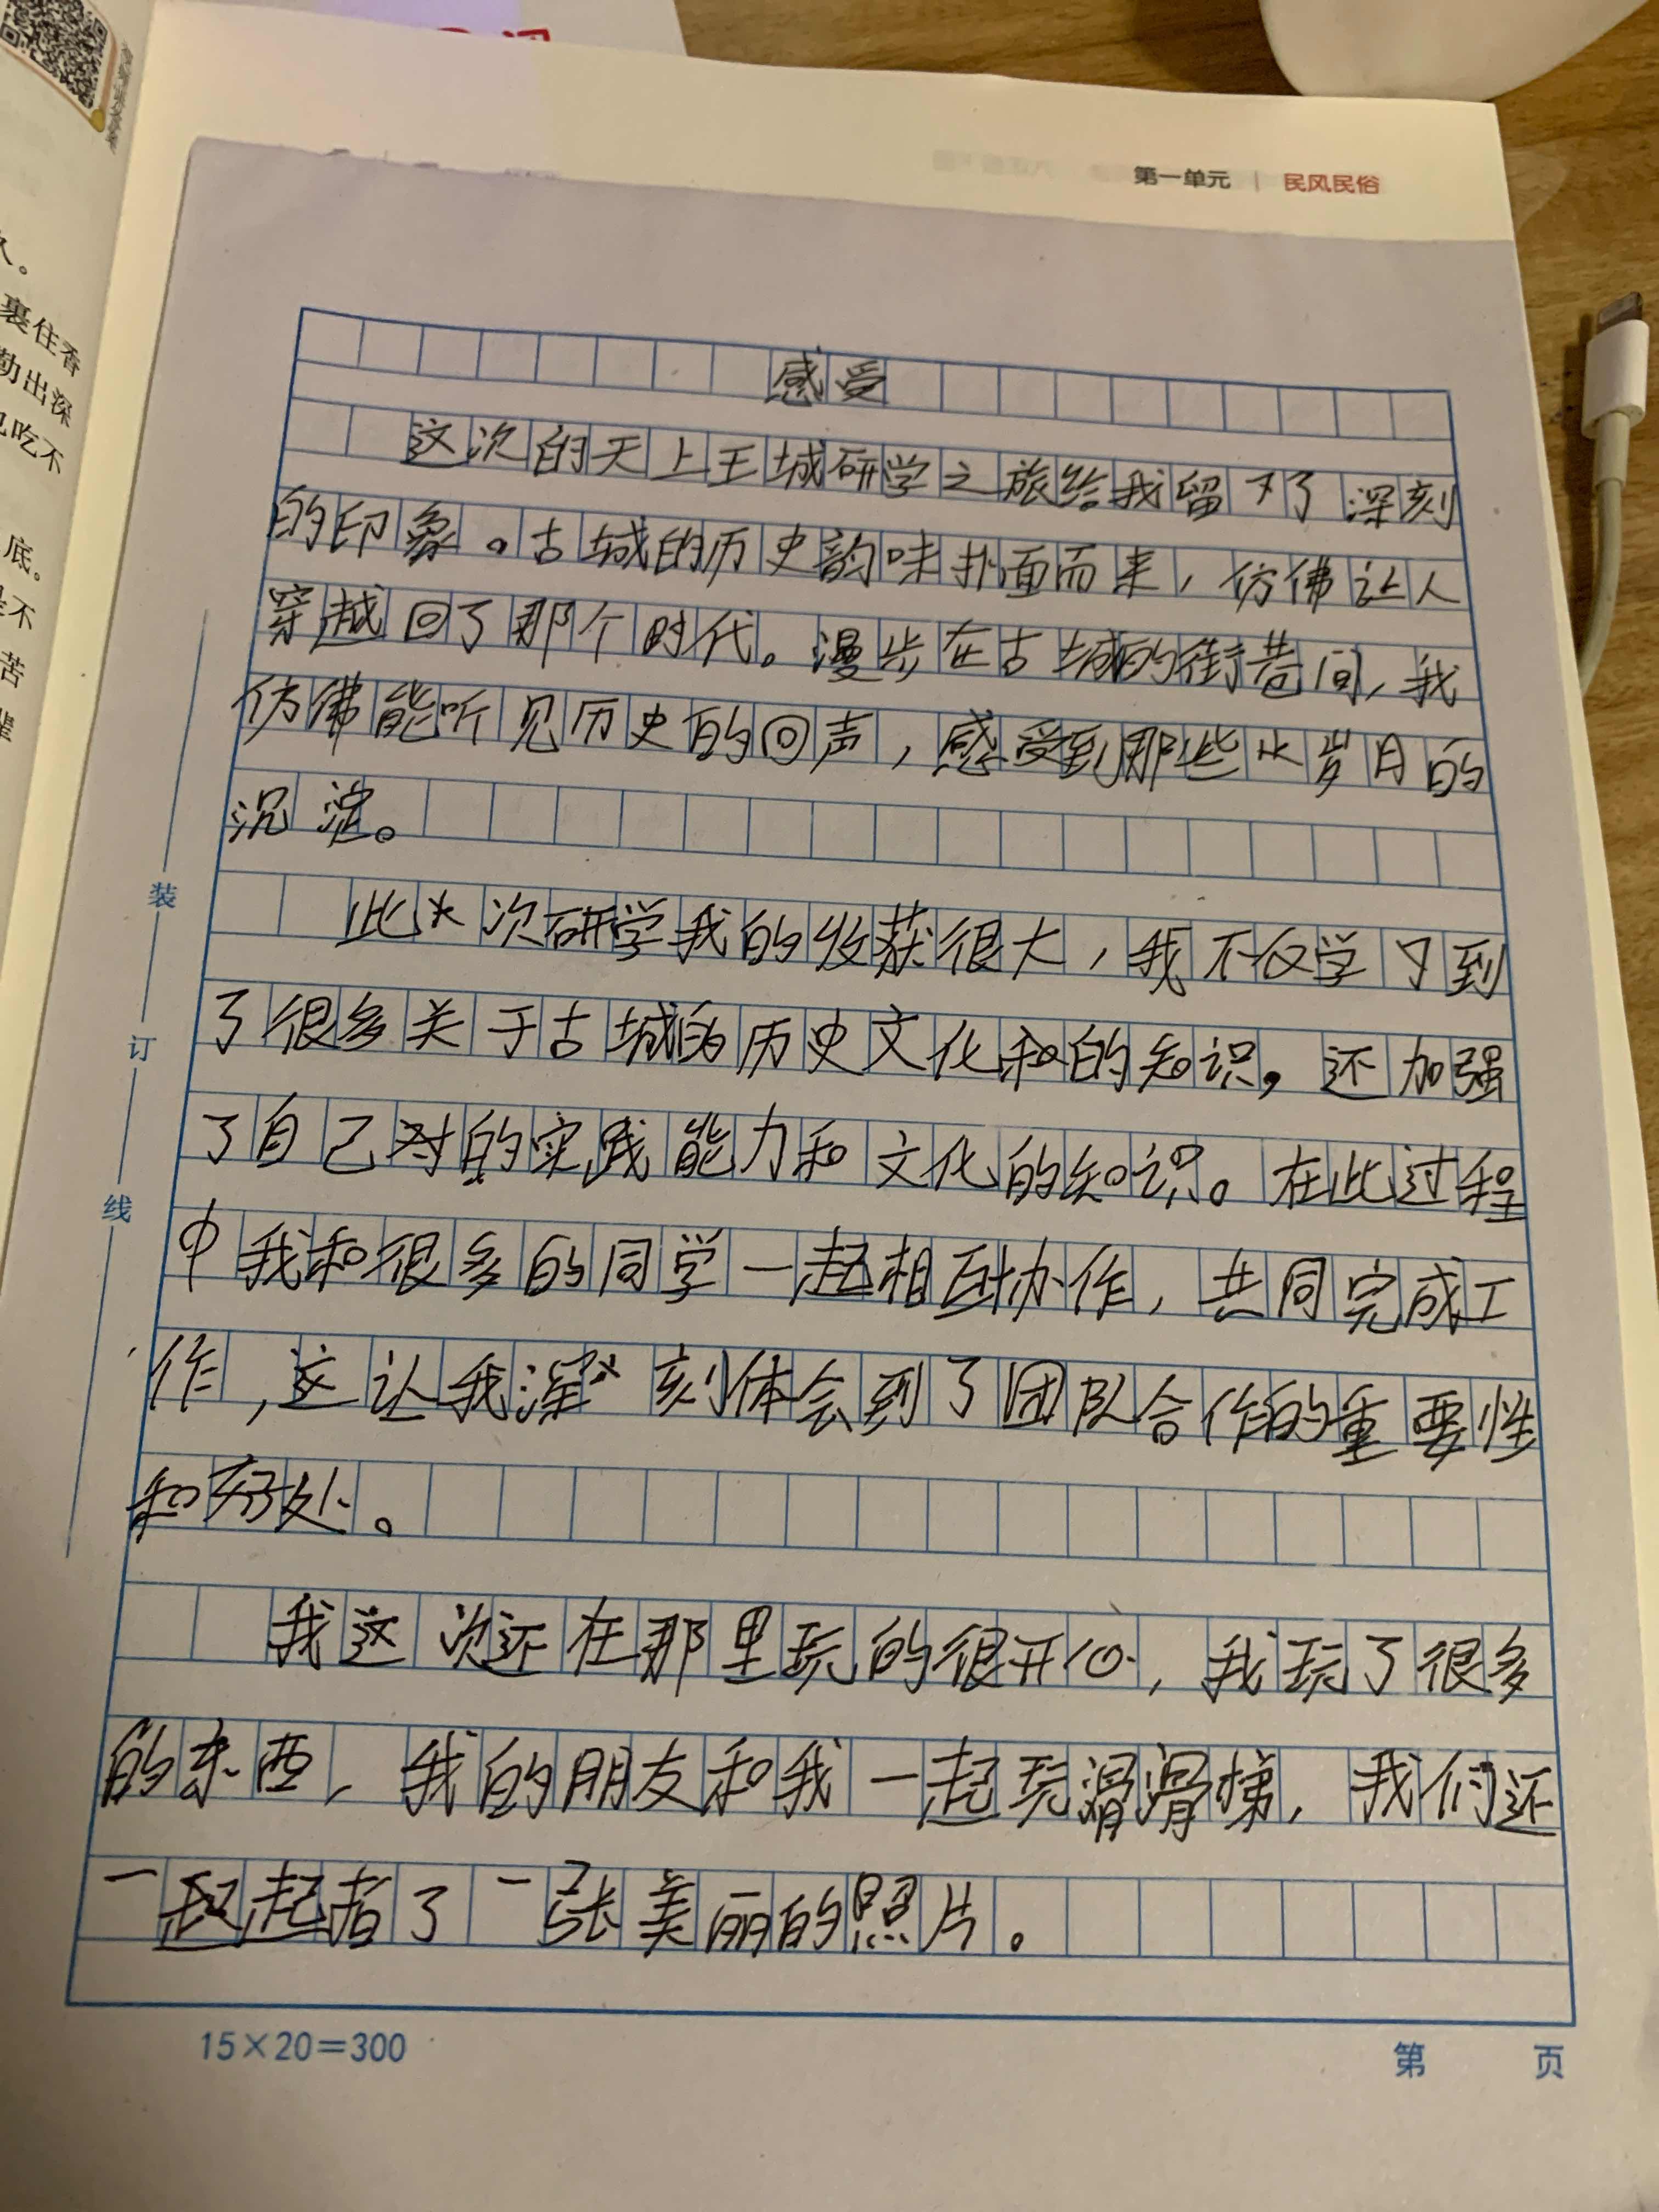 久。
裹住香
勒出深
吃不
底。
不
苦
第一单元 | 民风民俗
感受
这次的天上王城研学之旅给我留下了深刻
的印象。古城的历史韵味扑面而来,仿佛让人
穿越回了那个时代。漫步在古城的街巷间,我
仿佛能听见历史的回声,感受到那些岁月的
沉淀。
此次研学我的收获很大,我不仅学习到
了很多关于古城的历史文化和的知识,还加强
了自己对的实践能力和文化的知识。在此过程
中我和很多的同学一起相互协作,共同完成工
作,这让我深刻体会到了团队合作的重要性
和好处。
我这次还在那里玩的很开心,我玩了很多
的东西,我的朋友和我一起玩滑滑梯,我们还
一起起拍了一张美丽的照片。
装
订
线
15×20=300
第 页